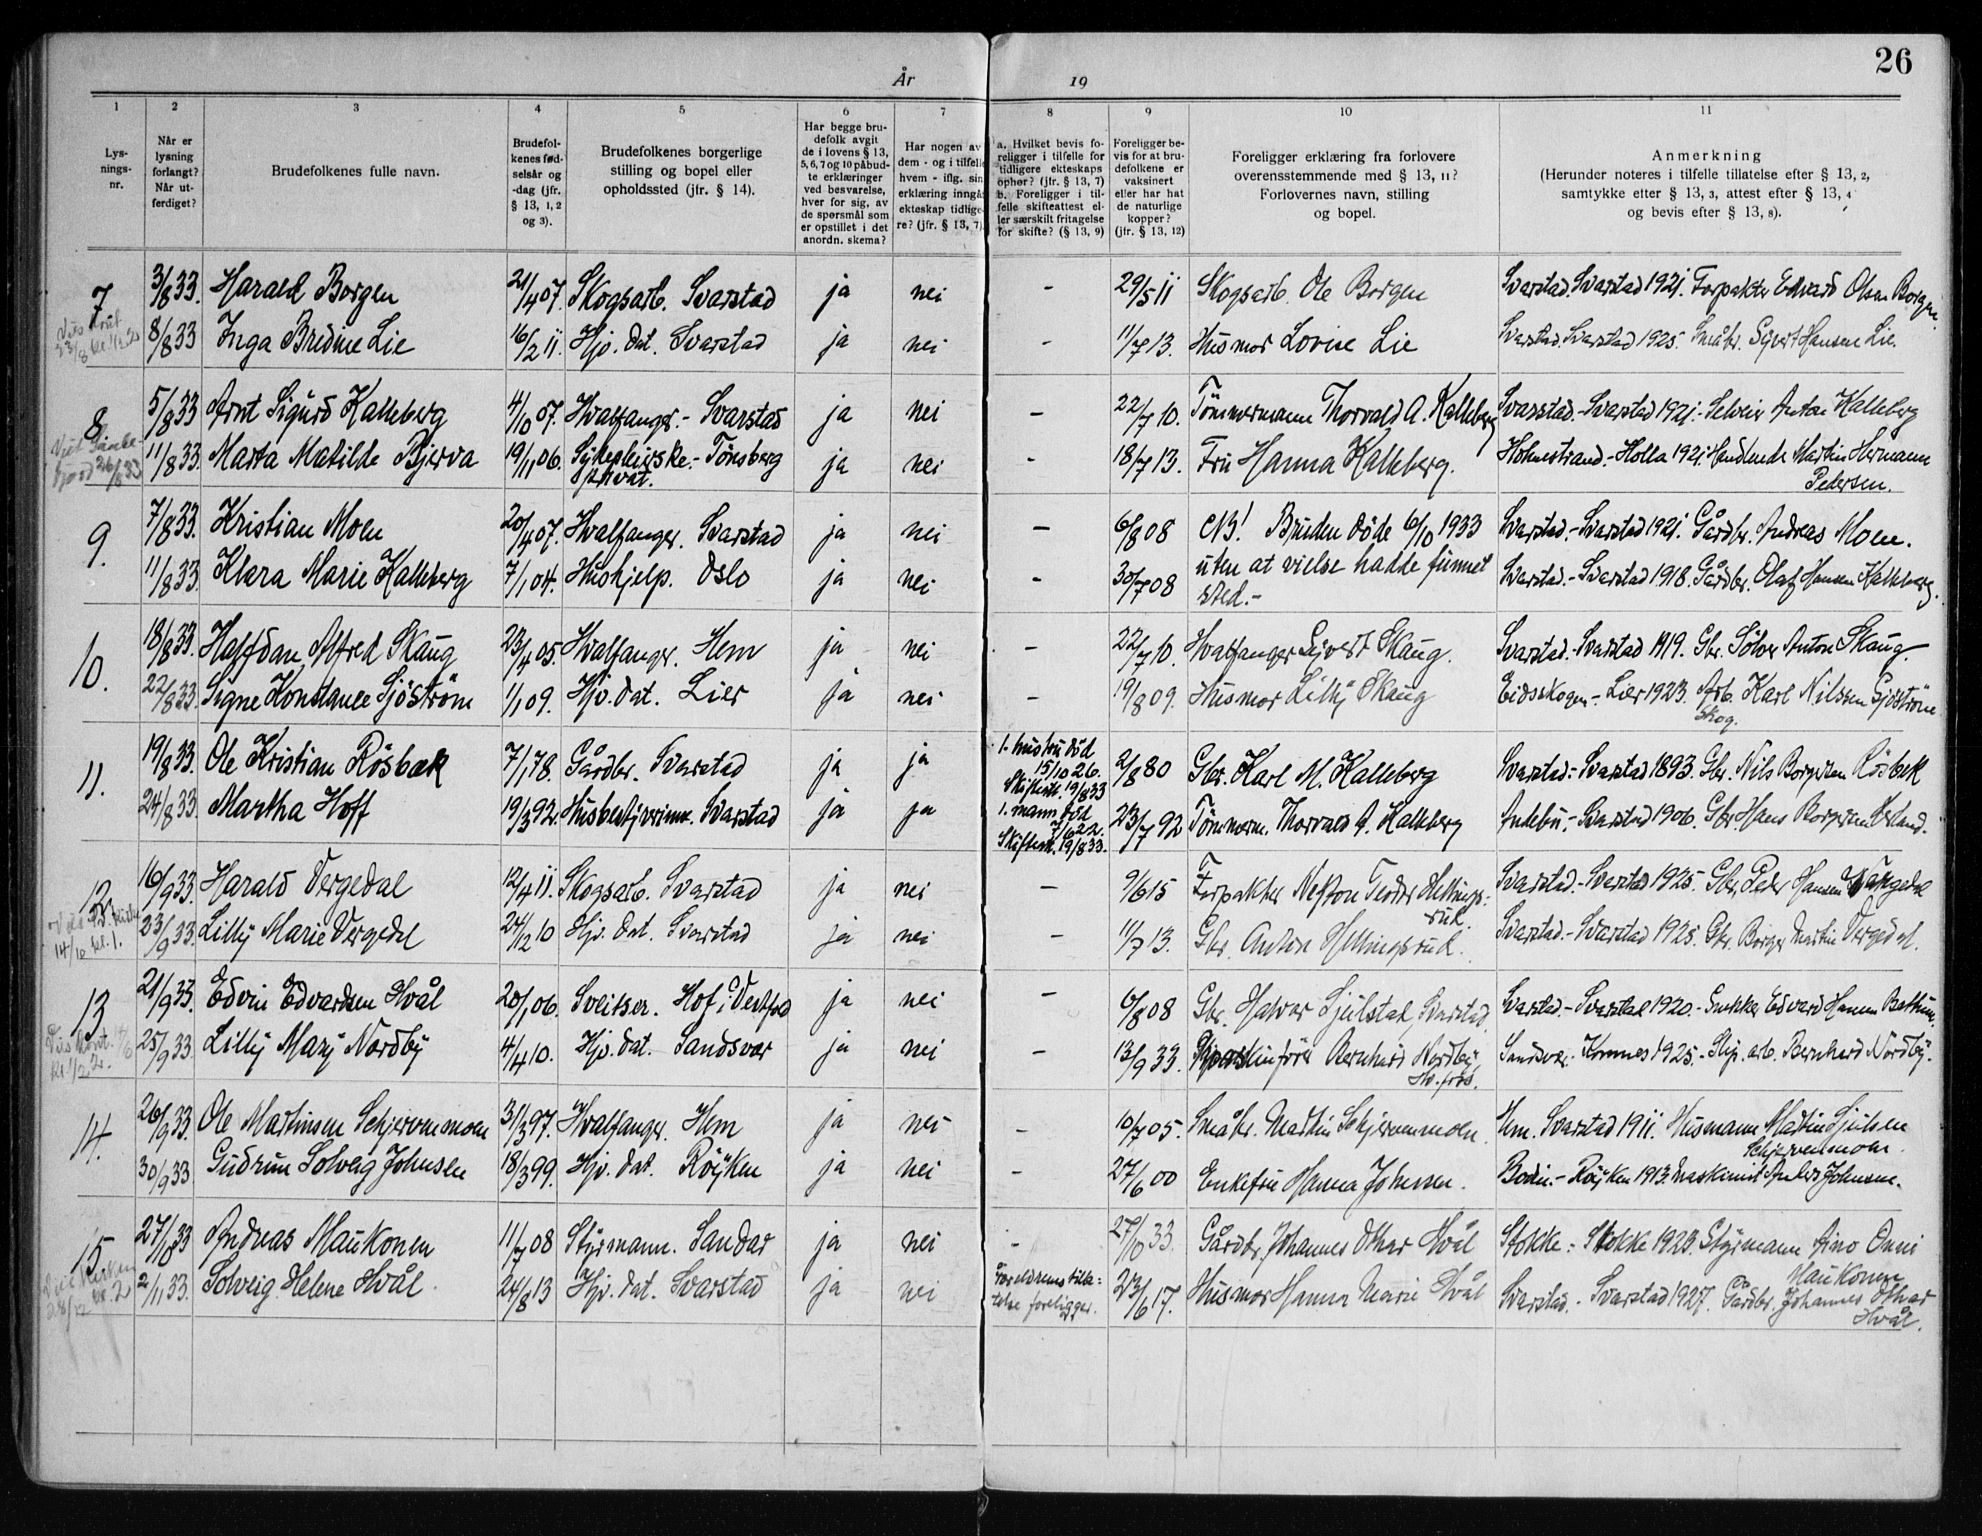 26
År 19
1 2 3 4 5 6 7 8 9 10 11
Lysningsnr.
Når er lysning forlangt? Når utferdiget?
Brudefolkenes fulle navn.
Brudefolkenes fødselsår og -dag (jfr. § 13, 1, 2 og 3).
Brudefolkenes borgerlige stilling og bopel eller opholdssted (jfr. § 14).
Har begge brudefolk avgit de i lovens § 13, 5, 6, 7 og 10 påbudte erklæringer ved besvarelse, hver for sig, av de spørsmål som er opstillet i det anordn. skema?
Har nogen av dem - og i tilfelle hvem - iflg. sin erklæring inngåt ekteskap tidligere? (jfr. § 13, 7).
a. Hvilket bevis foreligger i tilfelle for tidligere ekteskaps ophør? (jfr. § 13, 7) b. Foreligger i tilfelle skifteattest eller særskilt fritagelse for skifte? (§ 13, 9)
Foreligger bevis for at brudefolkene er vaksinert eller har hat de naturlige kopper? (jfr. § 13, 12)
Foreligger erklæring fra forlovere overensstemmende med § 13, 11? Forlovernes navn, stilling og bopel.
Anmerkning (Herunder noteres i tilfelle tillatelse efter § 13, 2, samtykke etter § 13, 3, attest efter § 13, 4 og bevis efter § 13, 8).
7 3/8 33. Harald Borgen 21/4 07. Skogsarb. Svarstad ja nei - 29/5 11 Skogsarb. Ole Borgen Svarstad. Svarstad 1921. Forpakter Edvard Olsen Borgen.
8/8 33 Inga Bredine Lie 16/2 11. Hjv. dat. Svarstad ja nei - 11/7 13. Husmor Lovise Lie Svarstad. Svarstad 1925. Småbr. Sivert Hansen Lie.
8 5/8 33 Arnt Sigurd Kalleberg 4/10 07. Hvalfanger.- Svarstad ja nei - 22/7 10. Tömmermann Thorvald A. Kalleberg Svarstad.- Svarstad 1921. Selveier Anton Kalleberg
11/8 33. Marta Matilde Bjerva 19/11 06. Sykepleierske.- Tönsberg privat. ja nei - 18/7 13. Fru Hanna Kalleberg. Holmestrand.- Holla 1921. Handlende Martin Hermann Pedersen.
9. 7/8 33. Kristian Moen 20/4 07. Hvalfanger. Svarstad ja nei - 6/8 08 NB! Bruden döde 6/10 1933 Svarstad.- Svarstad 1921. Gårdbr. Andreas Moen.
11/8 33. Klara Marie Kalleberg 7/1 04. Hushjelp. Oslo ja nei - 30/7 08 uten at vielse hadde funnet sted.- Svarstad.- Svarstad 1918. Gårdbr. Olaf Hansen Kalleberg.
10. 18/8 33. Halfdan Alfred Skaug 23/4 05. Hvalfanger. Hem ja nei - 22/7 10. Hvalfanger Sivert Skaug. Svarstad.- Svarstad 1919. Gbr. Sölver Anton Skaug.
22/8 33. Signe Konstance Sjöström 1/1 09. Hjv. dat. Lier ja nei - 19/8 09. Husmor Lilly Skaug Eidsskogen.- Lier 1923. Arb. Karl Nilssen Sjöström Skog.
11. 19/8 33. Ole Kristian Rösbæk 7/1 78. Gårdbr. Svarstad ja ja 1. hustru död 15/10 26. Skifteatt. 19/8 33 2/8 80 Gbr. Karl M. Kalleberg Svarstad.- Svarstad 1893. Gbr. Nils Borgersen Rösbek
24/8 33. Martha Hoff 19/3 92. Husbestyrerinne. Svarstad ja ja 1. mann död 7/6 22. Skifteatt. 19/8 33. 23/7 92 Tömmerm. Thorvald A. Kalleberg Andebu.- Svarstad 1906. Gbr. Hans Borgersen
12 16/9 33. Harald Vergedal 12/4 11. Skogsarb. Svarstad ja nei - 9/6 15 Forpakter Hellingsrud. Svarstad.- Svarstad 1925. Gbr. Peder Hansen Vergedal
14/10 kl. 1. 23/9 33. Lilly Marie Vergedal 24/12 10 Hjv. dat. Svarstad ja nei - 11/7 13. Gbr. Anton Hellingsrud. Svarstad.- Svarstad 1925. Gbr. Borger Martin Vergedal.
13 21/9 33. Edvin Edvardsen Hvål 20/1 06. Sveitser. Hof i Vestfold ja nei - 6/8 08 Gbr. Halvor Sjulstad, Svarstad. Svarstad.- Svarstad 1920.- Snekker Edvard Hansen
25/9 33. Lilly Mary Nordby 4/4 10. Hjv. dat. Sandsvær ja nei - 13/9 33. Bernhard Nordby, Hv.foss. Sandsvær. Komnes 1925.- Slip. arb. Bernhard Nordby.
14. 26/9 33. Ole Martinsen Schjervenmoen 31/3 97. Hvalfanger. Hem ja nei - 10/7 05. Småbr. Martin Schjervenmoen. Hem. Svarstad 1911. Husmann Martin Sjulsen Schjervenmoen.
30/9 33 Gudrun Solveig Johnsen 18/3 99. Hjv. dat. Röyken ja nei - 27/6 00 Enkefru Hanna Johnsen. Bodin.- Röyken 1913. Maskinist Anders Johnsen.
15 27/10 33 Andreas Maukonen 11/7 08 Styrmann. Sandar ja nei - 27/10 33. Gårdbr. Johannes Othar Hvål Stokke.- Stokke 1923. Styrmann Aino Onni Maukonen
2/11 33. Solveig Helene Hvål. 24/8 13 Hjv. dat. Svarstad ja nei Foreldrenes tillatelse foreligger. 23/6 17. Husmor Hanna Marie Hvål Svarstad.- Svarstad 1927. Gårdbr. Johannes Othar Hvål.